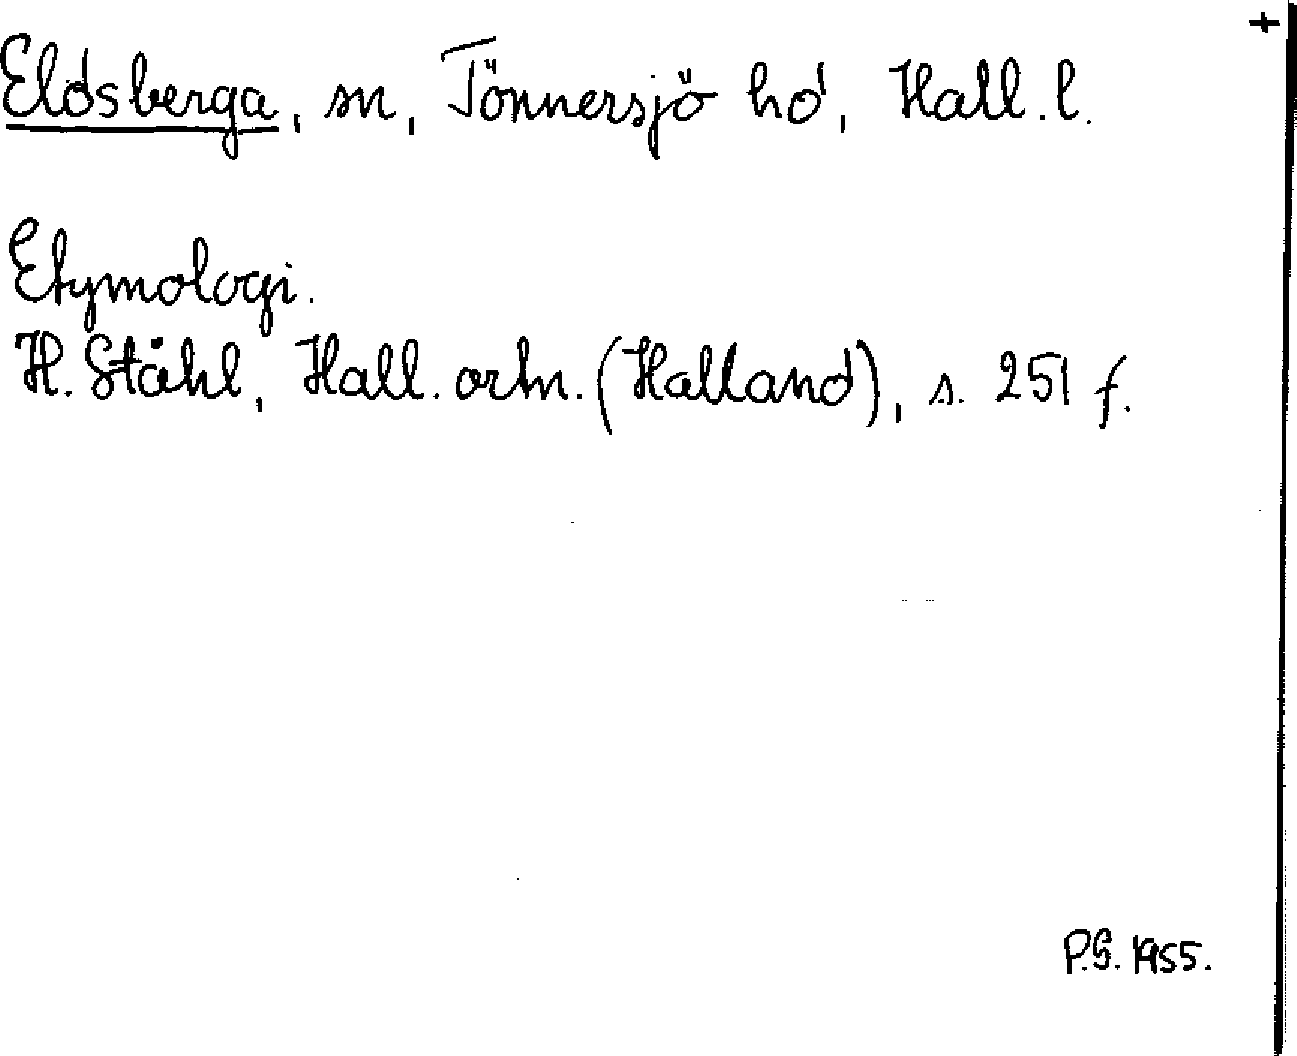 +
Eldsberga, sn, Tönnersjö hd, Hall. l.
Etymologi.
H. Ståhl, Hall. ortn. (Halland), s. 251 f.
P.G. 1955.